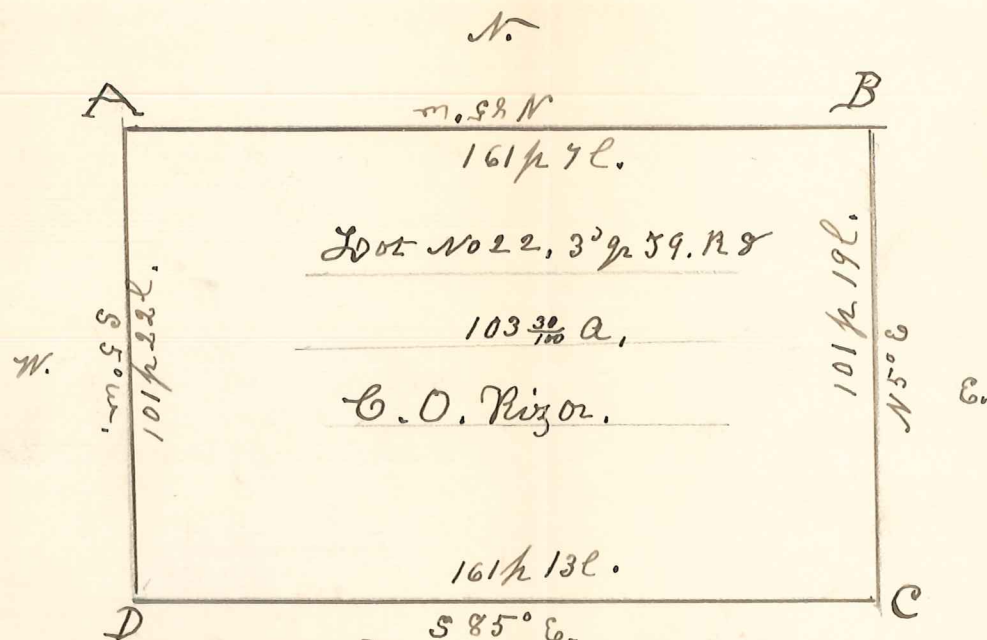 N.
A
B
N 85° W
161 p 7 l.
Lot No 22, 3d qr T9. R8
103 30/100 A,
C. O. Rizor.
W.
S 5° W.
101 p 22 l.
101 p 19 l.
N 5° E
E.
161 p 13 l.
D
C
S 85° E.